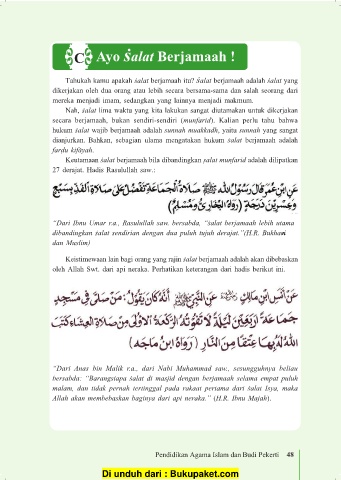 C Ayo Ṡalat Berjamaah !
Tahukah kamu apakah ṡalat berjamaah itu? Ṡalat berjamaah adalah ṡalat yang
dikerjakan oleh dua orang atau lebih secara bersama-sama dan salah seorang dari
mereka menjadi imam, sedangkan yang lainnya menjadi makmum.
Nah, ṡalat lima waktu yang kita lakukan sangat diutamakan untuk dikerjakan
secara berjamaah, bukan sendiri-sendiri (munfarid). Kalian perlu tahu bahwa
hukum ṡalat wajib berjamaah adalah sunnah muakkadh, yaitu sunnah yang sangat
dianjurkan. Bahkan, sebagian ulama mengatakan hukum ṡalat berjamaah adalah
fardu kifāyah.
Keutamaan ṡalat berjamaah bila dibandingkan ṡalat munfarid adalah dilipatkan
27 derajat. Hadis Rasulullah saw.:
عَنِ ابْنِ عُمَرَ قَالَ رَسُوْلُ اللهِ ﷺ صَلَاةُ الْجَمَاعَةِ تَفْضُلُ عَلَى صَلَاةِ الْفَذِّ بِسَبْعٍ
وَعِشْرِيْنَ دَرَجَةً (رَوَاهُ الْبُخَارِيُّ وَمُسْلِمٌ)
“Dari Ibnu Umar r.a., Rasulullah saw. bersabda, “ṡalat berjamaah lebih utama
dibandingkan ṡalat sendirian dengan dua puluh tujuh derajat.”(H.R. Bukhari
dan Muslim)
Keistimewaan lain bagi orang yang rajin ṡalat berjamaah adalah akan dibebaskan
oleh Allah Swt. dari api neraka. Perhatikan keterangan dari hadis berikut ini.
عَنْ أَنَسِ ابْنِ مَالِكٍ عَنِ النَّبِيِّ ﷺ أَنَّهُ كَانَ يَقُوْلُ: مَنْ صَلَّى فِيْ مَسْجِدٍ
جَمَاعَةً أَرْبَعِيْنَ لَيْلَةً لَا تَفُوْتُهُ الرَّكْعَةُ الْأُوْلَى مِنْ صَلَاةِ الْعِشَاءِ كَتَبَ
اللهُ لَهُ بِهَا عِتْقًا مِنَ النَّارِ (رَوَاهُ ابْنُ مَاجَه)
“Dari Anas bin Malik r.a., dari Nabi Muhammad saw., sesungguhnya beliau
bersabda: “Barangsiapa ṡalat di masjid dengan berjamaah selama empat puluh
malam, dan tidak pernah tertinggal pada rakaat pertama dari ṡalat Isya, maka
Allah akan membebaskan baginya dari api neraka.” (H.R. Ibnu Majah).
Pendidikan Agama Islam dan Budi Pekerti 48
Di unduh dari : Bukupaket.com